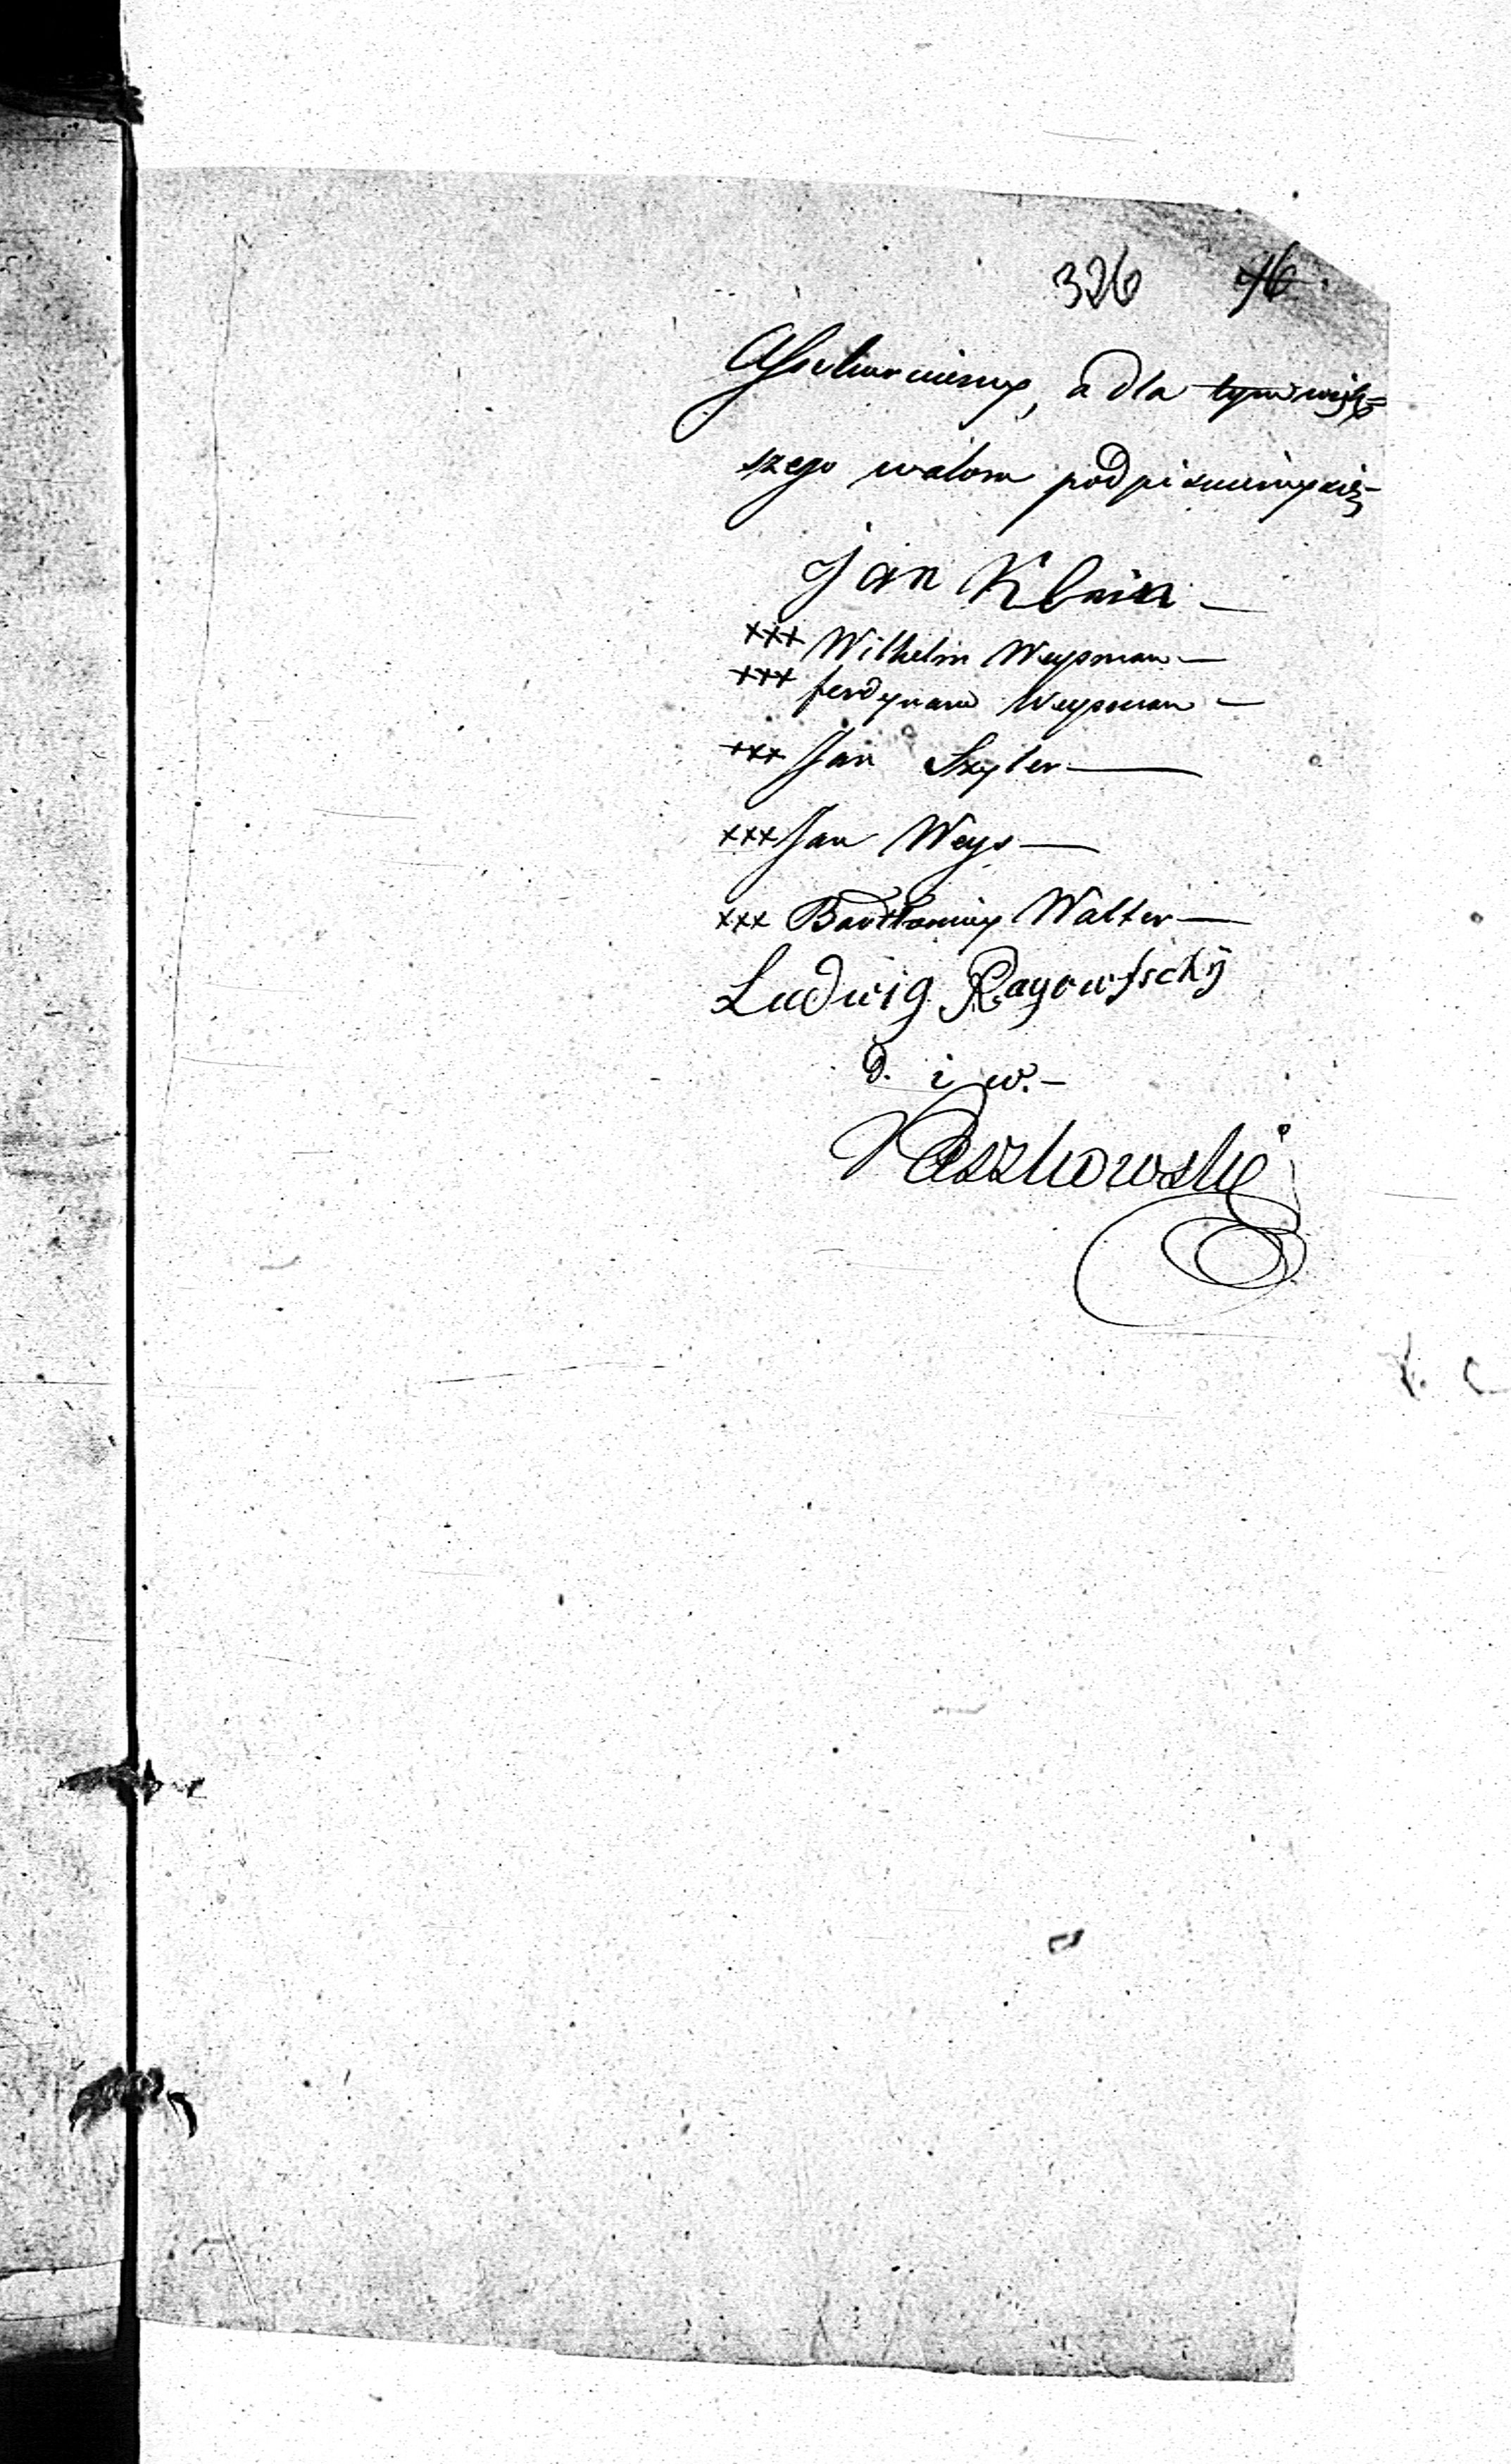 326 76.
Assekurujemy, a dla tym więk=
szego waloru podpisujemy się–
Jan Klein –
xxx Wilhelm Weysman –
xxx ferdynand Weysman –
xxx Jan Szyler –
xxx Jan Weys –
xxx Bartłomiey Walter –
Ludwig Rayowssckÿ
d. i w. –
Paszkowski